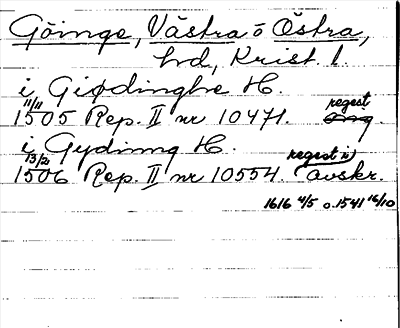 Göinge, Västra o Östra,
hd, Krist. l.
i Giødinghe H.
11/11 regest
1505 Rep. II nr 10471. orig.
i Gydinng H.
13/2 regest i
1506 Rep. II nr 10554. avskr.
1616 4/5 o. 1541 16/10